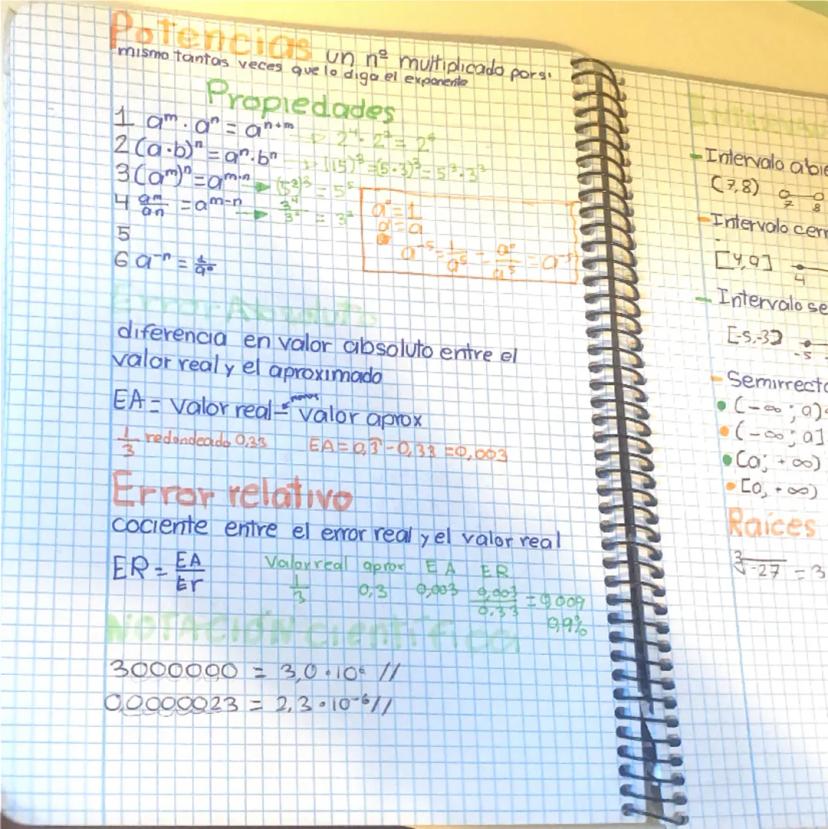 Potencias un nº multiplicado por si
mismo tantas veces que lo diga el exponente
Propiedades
1 aᵐ · aⁿ = aⁿ⁺ᵐ → 2⁴ · 2² =
2 (a·b)ⁿ = aⁿ·bⁿ → (15)³ = (5·3)³ = 5³·3³
3 (aᵐ)ⁿ = aᵐ·ⁿ → (5²)³ =
4 aᵐ/aⁿ = aᵐ⁻ⁿ → = 3²
a⁰ = 1
a¹ = a
a⁻⁵ = 1/a⁵ = a⁰/a⁵ =
5
6 a⁻ⁿ =
Error Absoluto
diferencia en valor absoluto entre el
valor real y el aproximado
EA = valor real - menos valor aprox
1/3 redondeado 0,33 EA = 0,3̄ - 0,33 = 0,003
Error relativo
cociente entre el error real y el valor real
ER = EA/Er
Valor real aprox EA ER
1/3 0,3 0,003 0,003/0,33 = 0,009
0,9%
NOTACIÓN Científica
3000000 = 3,0·10⁶ //
0,0000023 = 2,3·10⁻⁶ //
- Intervalo abie
(7,8)
7 8
- Intervalo cerr
4
- Intervalo se
[-5,-3)
-5
- Semirrecta
• (-∞; a)
• (-∞; a]
• (a; +∞)
• [a, +∞)
Raíces
³√-27 = 3